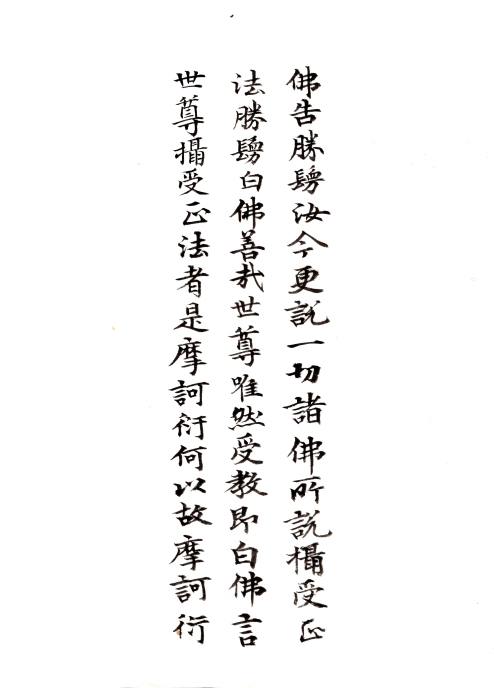 佛告勝鬘汝今更說一切諸佛所說攝受正
法勝鬘白佛善哉世尊唯然受教即白佛言
世尊攝受正法者是摩訶衍何以故摩訶衍